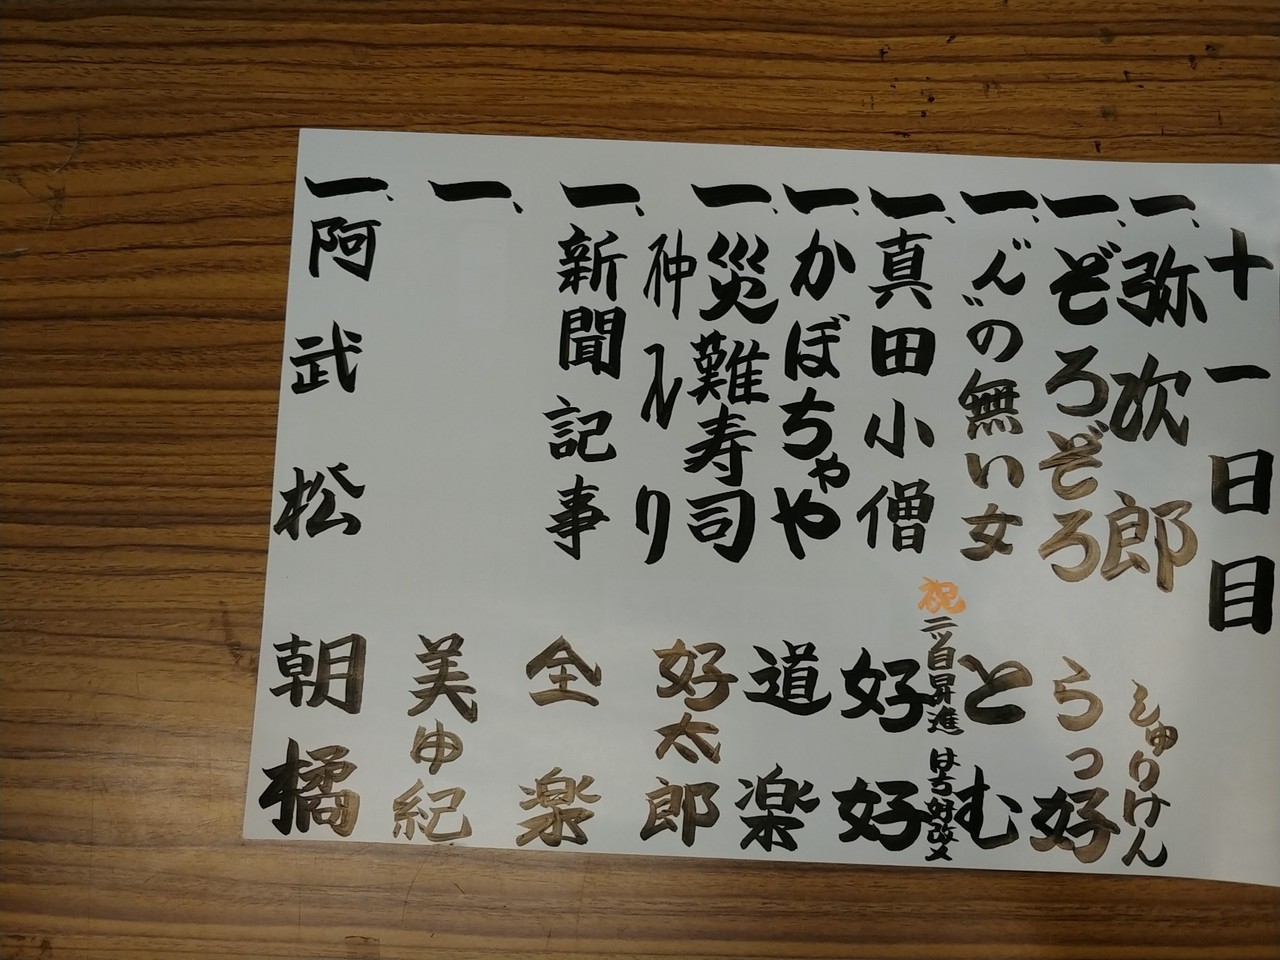 十一日目
一、弥次郎 しゅりけん
一、ぞろぞろ らっ好
一、ん〃の無い女 とむ
祝 二ッ目昇進 はち好改メ
一、真田小僧 好好
一、かぼちゃや 道楽
一、災難寿司 好太郎
仲ルり
一、新聞記事 全楽
一、 美由紀
一、阿武松 朝橘